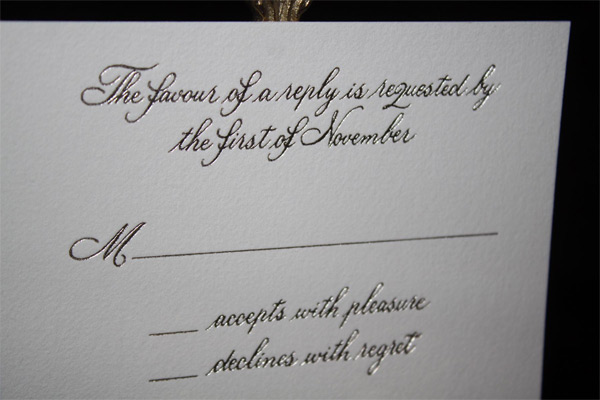 The favour of a reply is requested by
the first of November
M
accepts with pleasure
declines with regret